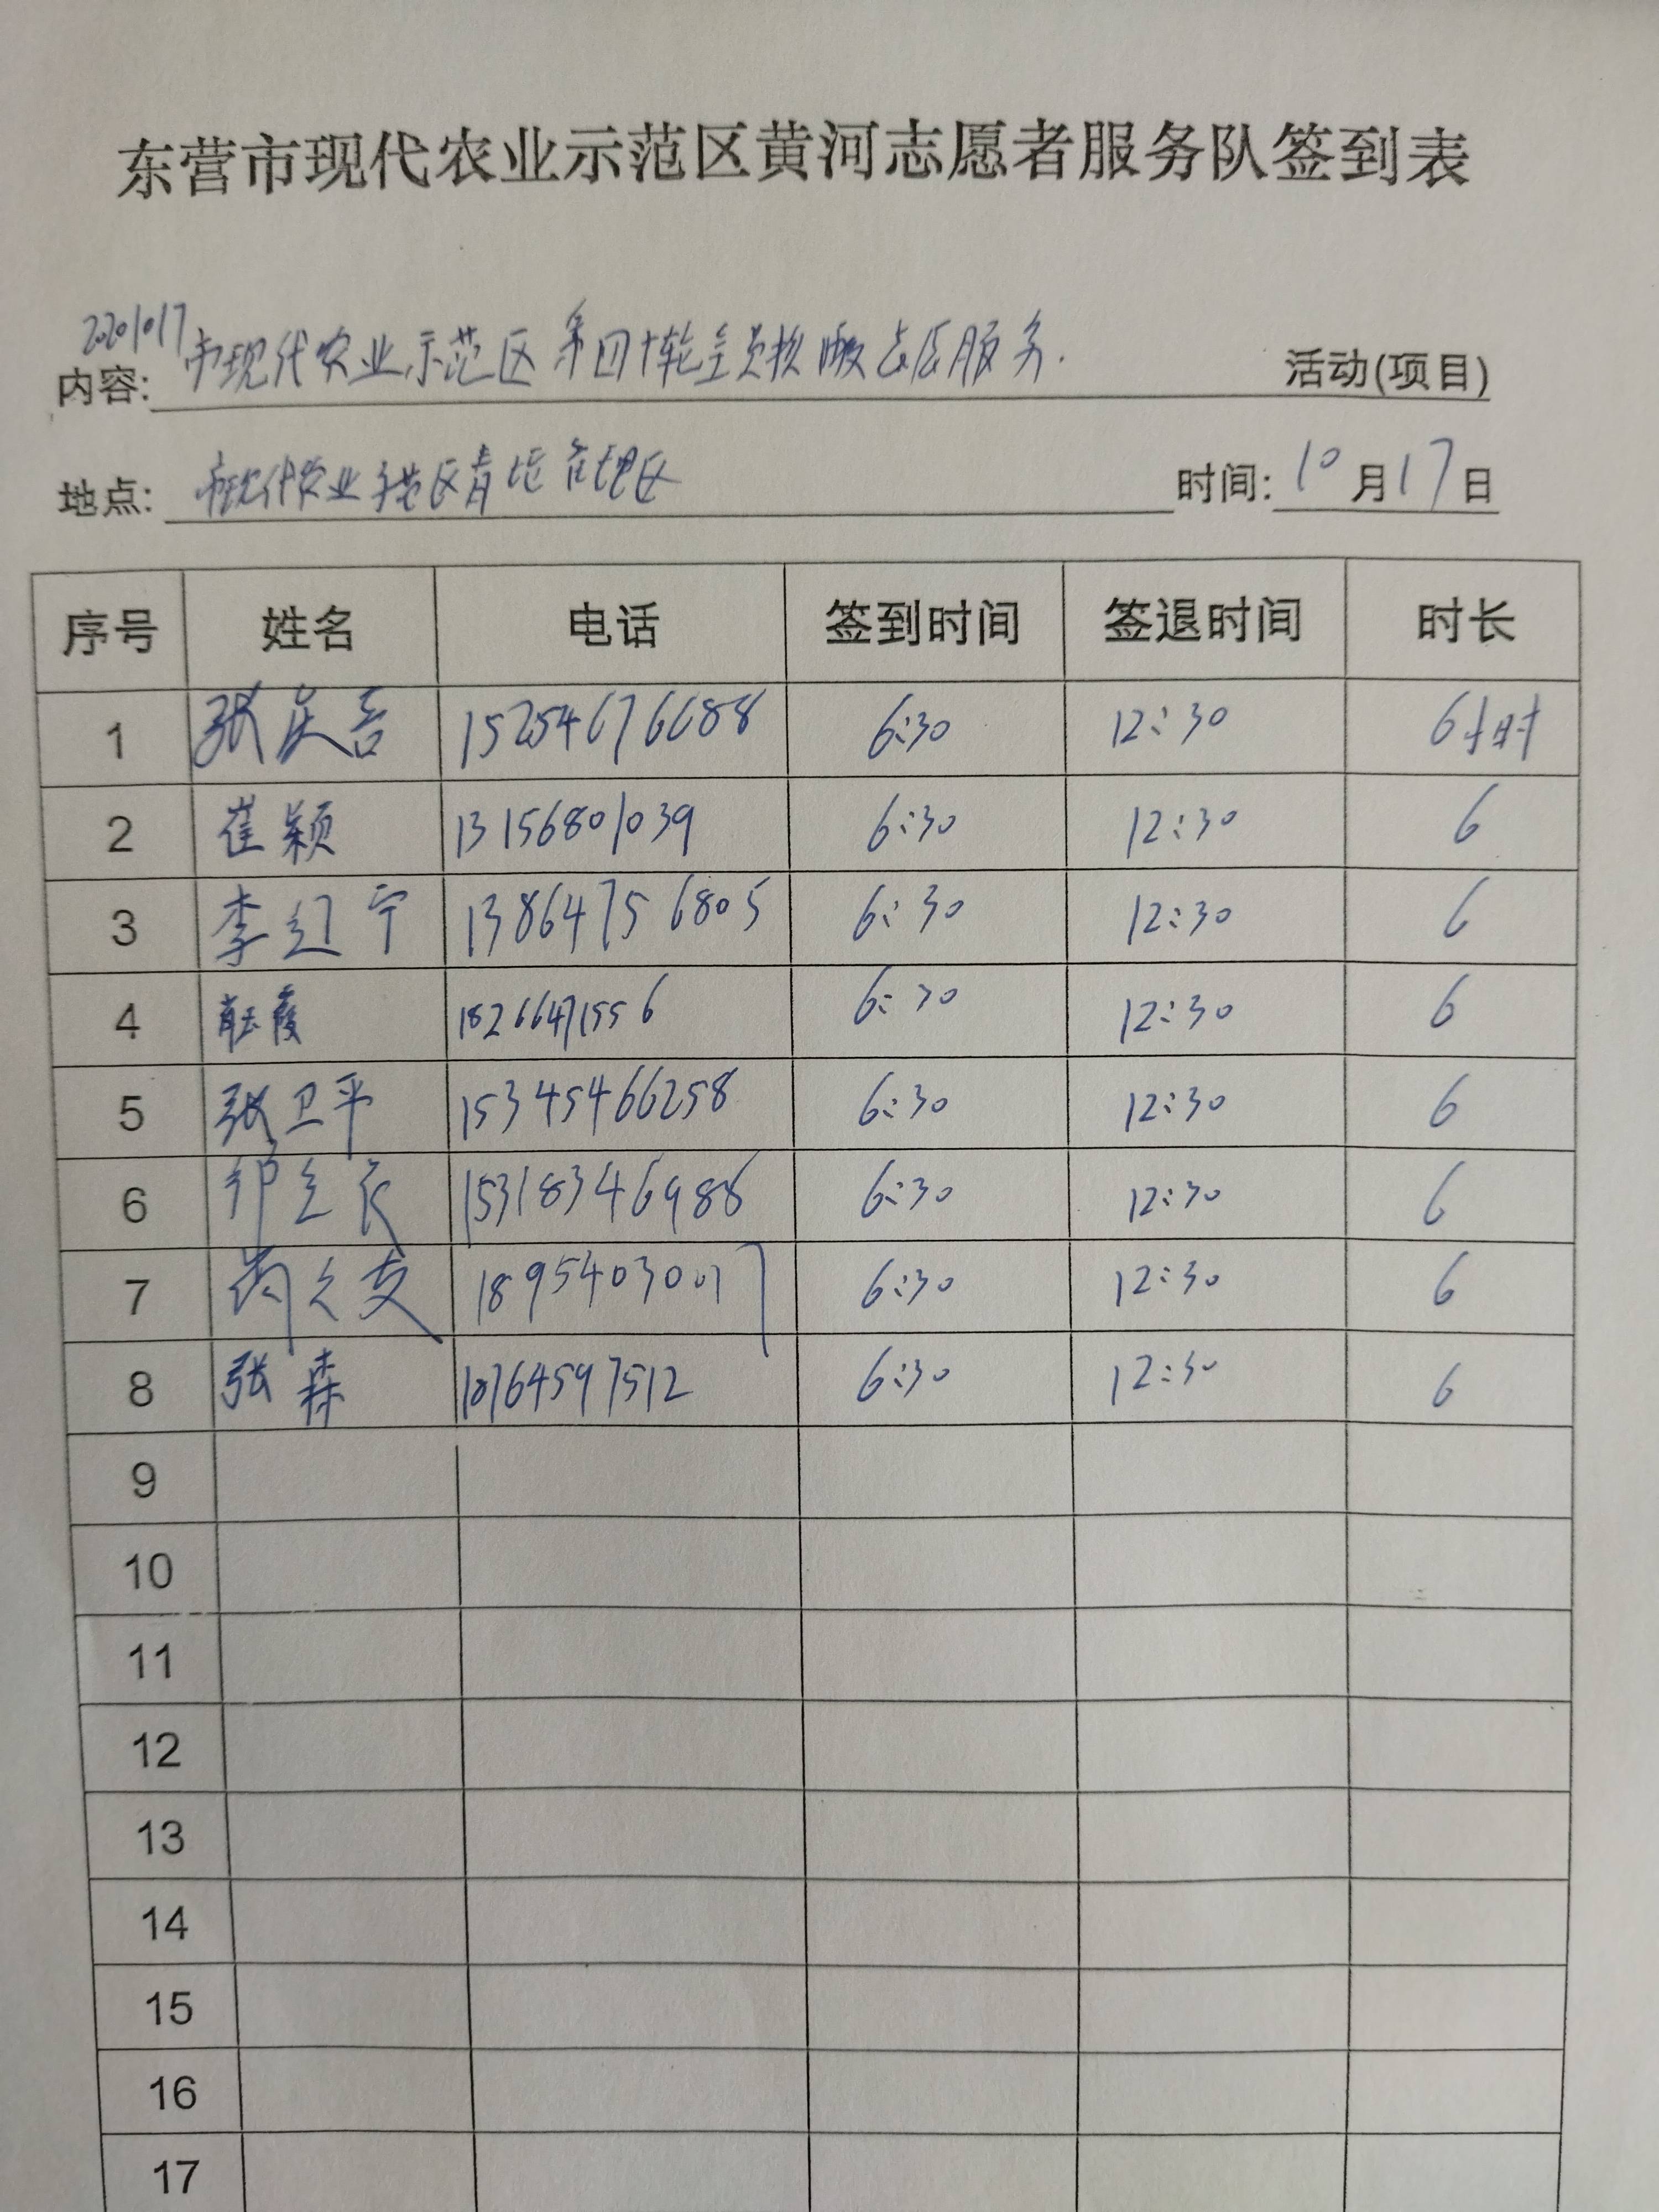 东营市现代农业示范区黄河志愿者服务队签到表
20201017
内容: 市现代农业示范区第四十轮全员核酸志愿服务. 活动(项目)
地点: 市现代农业示范区青坨 区 时间: 10月17日
序号 姓名 电话 签到时间 签退时间 时长
1 张庆吉 15254676688 6:30 12:30 6小时
2 崔颖 13156801039 6:30 12:30 6
3 李辽宁 13864756805 6:30 12:30 6
4 霞 18266471556 6:30 12:30 6
5 张卫平 15345466258 6:30 12:30 6
6 15318346988 6:30 12:30 6
7 6:30 12:30 6
8 张森 18764597512 6:30 12:30 6
9
10
11
12
13
14
15
16
17